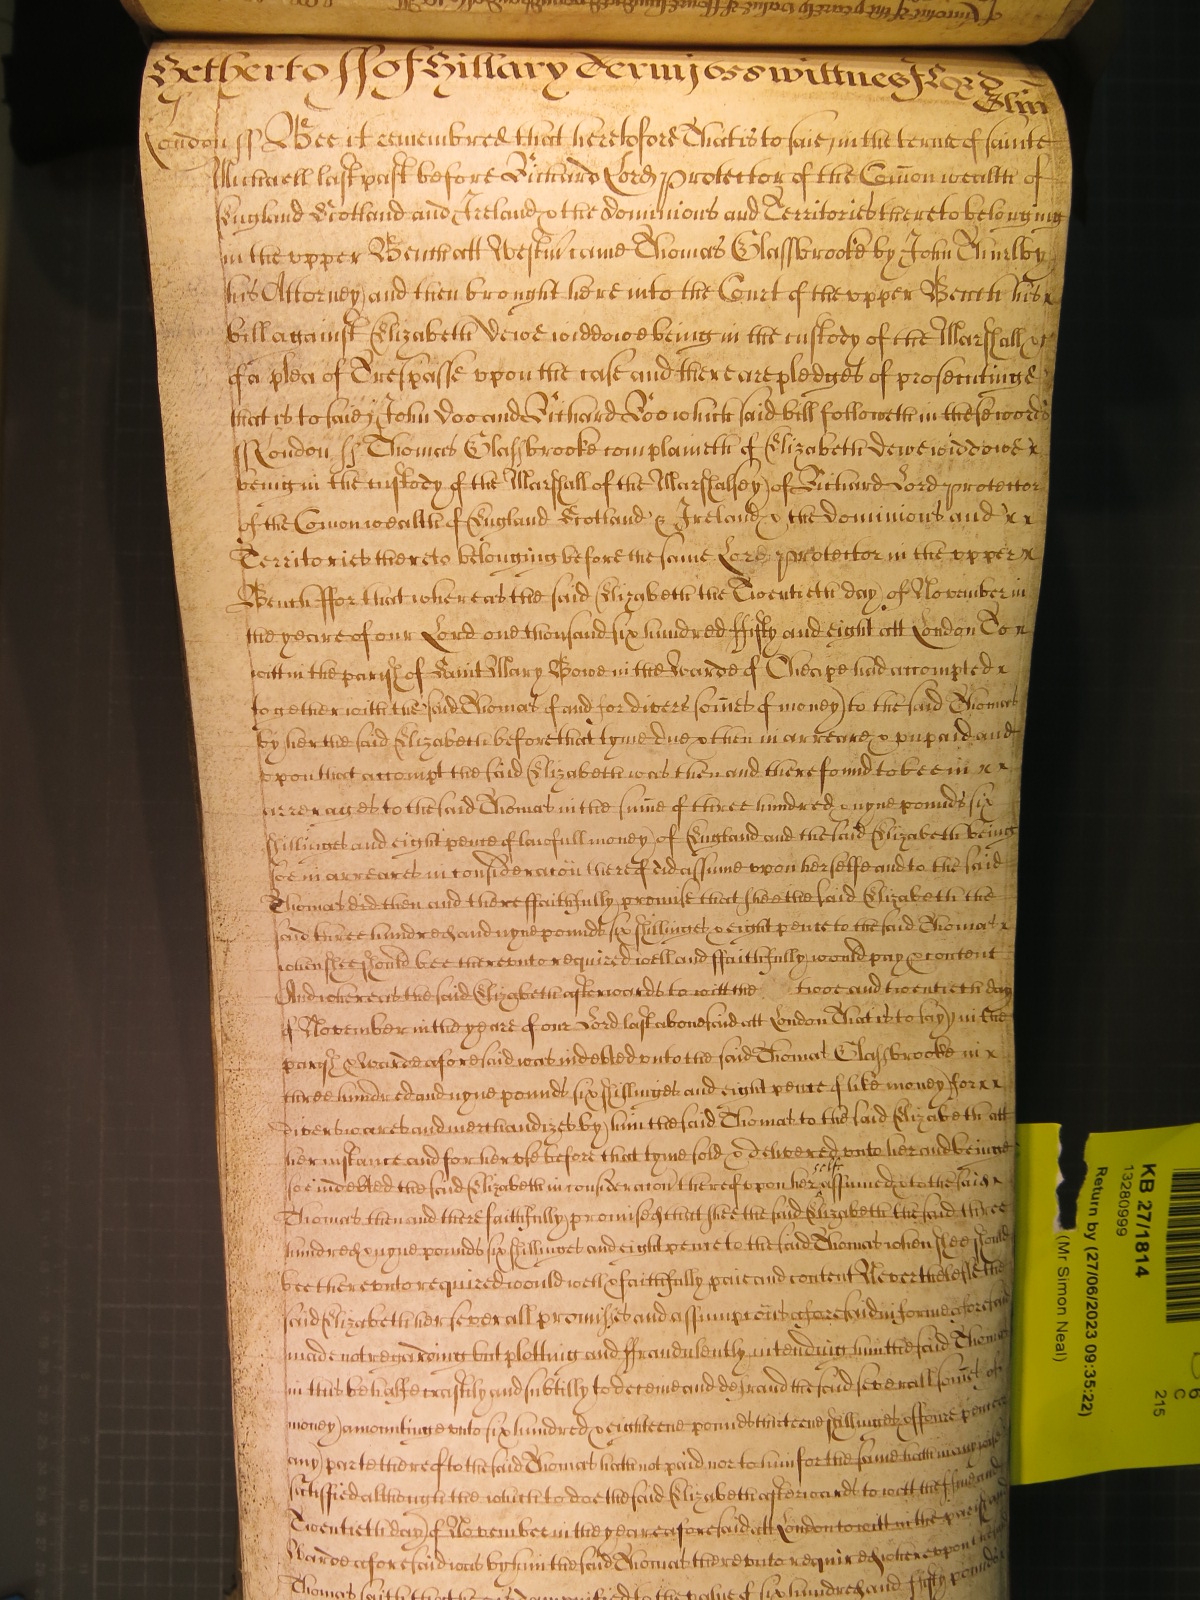 Yet hertofore of Hillary Terme 1658 wittnes J Lord
Glin
London ss Bee it remembred that heretofore That is to saie in the terme of sainte
Michaell last past before Richard Lord Protector of the Com̄on wealth of
England Scotland and Ireland & the dominions and Territories thereto belonging
in the upper Bench att Westm̄ came Thomas Glassbrooke by John
his Attorney and then brought here into the Court of the upper Bench his
bill against Elizabeth Dewe widdowe being in the custody of the Marshall &c
of a plea of Trespasse upon the case and there are pledges of prosecutinge
that is to saie John Doo and Richard Roo which said bill followeth in these words
ss London ss Thomas Glassbrooke complaineth of Elizabeth Dewe widdowe
being in the custody of the Marshall of the Marshalsey of Richard Lord Protector
of the Com̄onwealth of England Scotland & Ireland & the dominions and
Territories thereto belonging before the same Lord Protector in the upper
Bench ffor that whereas the said Elizabeth the Twentieth day of November in
the yeare of our Lord one thousand six hundred ffifty and eight att London To
witt in the parish of Saint Mary Bowe in the Warde of Cheape had accompted
together with the said Thomas of and for divers som̄es of money to the said Thomas
by her the said Elizabeth before that tyme due & then in arreare & unpaid and
upon that accompt the said Elizabeth was then and there found to bee in
arrerages to the said Thomas in the sum̄e of three hundred & nyne pounds six
shillinges and eight pence of lawfull money of England and the said Elizabeth being
soe in arreares in consideracōn thereof did assume upon herselfe and to the said
Thomas did then and there ffaithfully promise that shee the said Elizabeth the
said three hundred and nyne pounds six shillinges & eight pence to the said Thomas
when shee should bee thereunto required well and ffaithfully would pay & content
And whereas the said Elizabeth afterwards to witt the twoe and twentieth day
of November in the yeare of our Lord last abovesaid att London That is to say in the
parish & Warde aforesaid was indebted unto the said Thomas Glassbrooke in
three hundred and nyne pounds six shillinges and eight pence of like money for
divers wares and merchandizes by him the said Thomas to the said Elizabeth att
her instance and for her use before that tyme sold & delivered unto her and beinge
soe indebted the said Elizabeth in consideracōn thereof upon her selfe assumed & to the said
Thomas then and there faithfully promised that shee the said Elizabeth the said three
hundred & nyne pounds six shillinges and eight pence to the said Thomas when shee should
bee thereunto required would well & faithfully paie and content Neverthelesse the
said Elizabeth her severall promises and assumpcōns aforesaid in forme aforesaid
made not regarding but plotting and ffraudulently intending him the said Thomas
in this behalfe craftily and subtilly to deceive and defraud the said severall som̄es of
money amountinge unto six hundred & eighteene pounds thirteene shillinges & ffoure pence
any parte thereof to the said Thomas hath not paid nor to him for the same hath in any wise
satisfied although the which to doe the said Elizabeth afterwards to witt the and
Twentieth day of November in the yeare aforesaid att London to witt in the parish and
Warde aforesaid was by him the said Thomas thereunto required whereupon the said
Thomas saith that hee is damnified to the value of six hundred and ffifty pounds
KB 27/1814
13280999
Return by (27/06/2023 09:35:22)
(Mr Simon Neal)
C
215